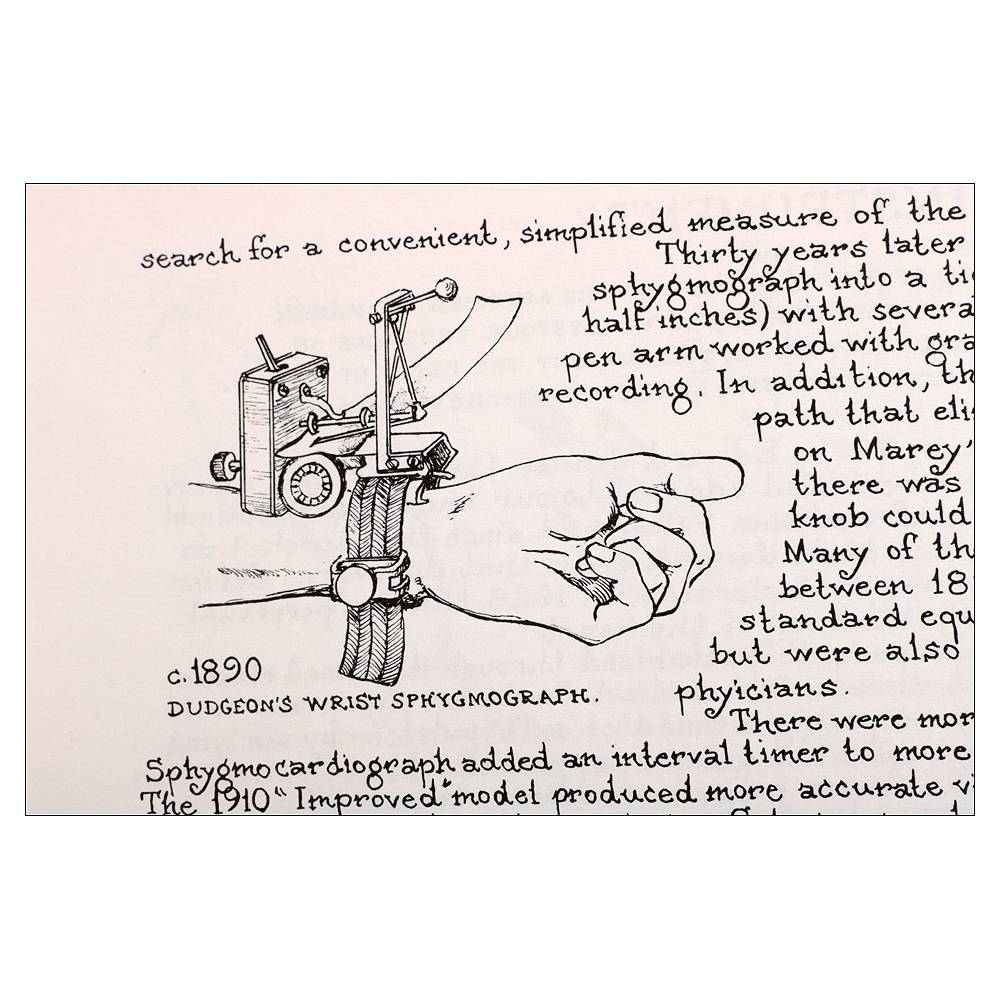 search for a convenient, simplified measure of the
Thirty years later
sphygmograph into a
half inches) with
pen arm worked with
recording. In addition,
path that
on Marey'
there was
knob could
Many of
between 18
standard
but were also
phyicians.
c. 1890
DUDGEON'S WRIST SPHYGMOGRAPH.
There were
Sphygmocardiograph added an interval timer to more
The 1910 "Improved" model produced more accurate